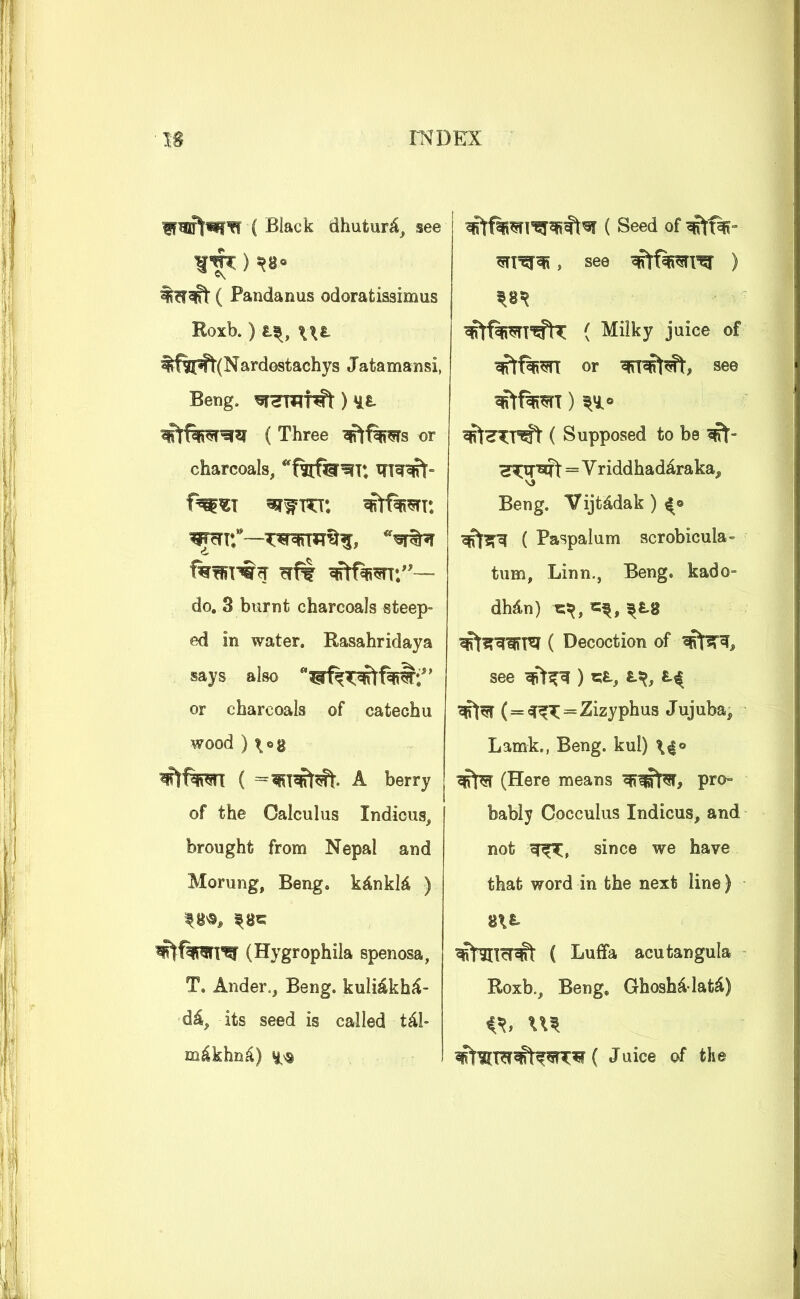 18 INDEX
( Black dhuturá, see
) २४०
केतकी ( Pandanus odoratissimus
Roxb. ) ९३, ११९
(Nardostachys Jatamansi,
Beng. जटामांसी ) ५९
कोकिलत्रय ( Three कोकिलs or
charcoals,
अङ्गाराः कोकिलाः
कोकिलाः”—
do. 3 burnt charcoals steep-
ed in water. Rasahridaya
says also
or charcoals of catechu
wood ) १०४
कोकिला ( =काकोली. A berry
of the Calculus Indicus,
brought from Nepal and
Morung, Beng. kánklá )
२४७, २४८
कोकिलाक्ष (Hygrophila spenosa,
T. Ander., Beng. kuliákhá-
dá, its seed is called tál-
mákhná) ५७
कोकिलाक्षकबीज ( Seed of कोकि-
लाक्षक, see कोकिलाक्ष )
२४२
कोकिलाक्षीर ( Milky juice of
कोकिला or काकोली, see
कोकिला ) २५०
( Supposed to be को-
=Vriddhadáraka,
Beng. Vijtádak ) ६०
कोद्रव ( Paspalum scrobicula-
tum, Linn., Beng. kado-
dhán) ८२, ८३, ३९४
कोद्रवक्वाथ ( Decoction of कोद्रव,
see कोद्रव ) ८९, ९२, ९६
कोल (=बदर=Zizyphus Jujuba,
Lamk., Beng. kul) १६०
कोल (Here means कक्कोल, pro-
bably Cocculus Indicus, and
not बदर, since we have
that word in the next line)
४१९
कोशातकी ( Luffa acutangula
Roxb., Beng. Ghoshá-latá)
६२, ११३
( Juice of the